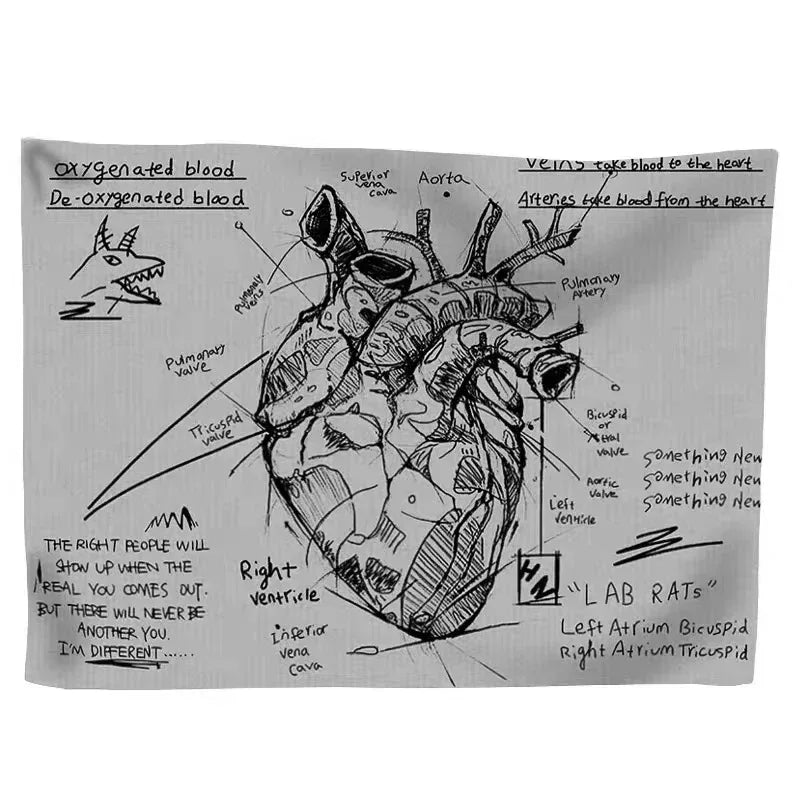 Oxygenated blood
De-oxygenated blood
Veins take blood to the heart
Arteries take blood from the heart
Superior
vena
cava
Aorta
Pulmonary
veins
Pulmonary
Artery
Pulmonary
valve
Tricuspid
valve
Bicuspid
or
valve
Aortic
valve
Left
ventricle
Something New
Something New
Something New
THE RIGHT PEOPLE WILL
SHOW UP WHEN THE
REAL YOU COMES OUT.
BUT THERE WILL NEVER BE
ANOTHER YOU.
I'M DIFFERENT......
Right
ventricle
Inferior
vena
cava
HN
"LAB RATs"
Left Atrium Bicuspid
Right Atrium Tricuspid